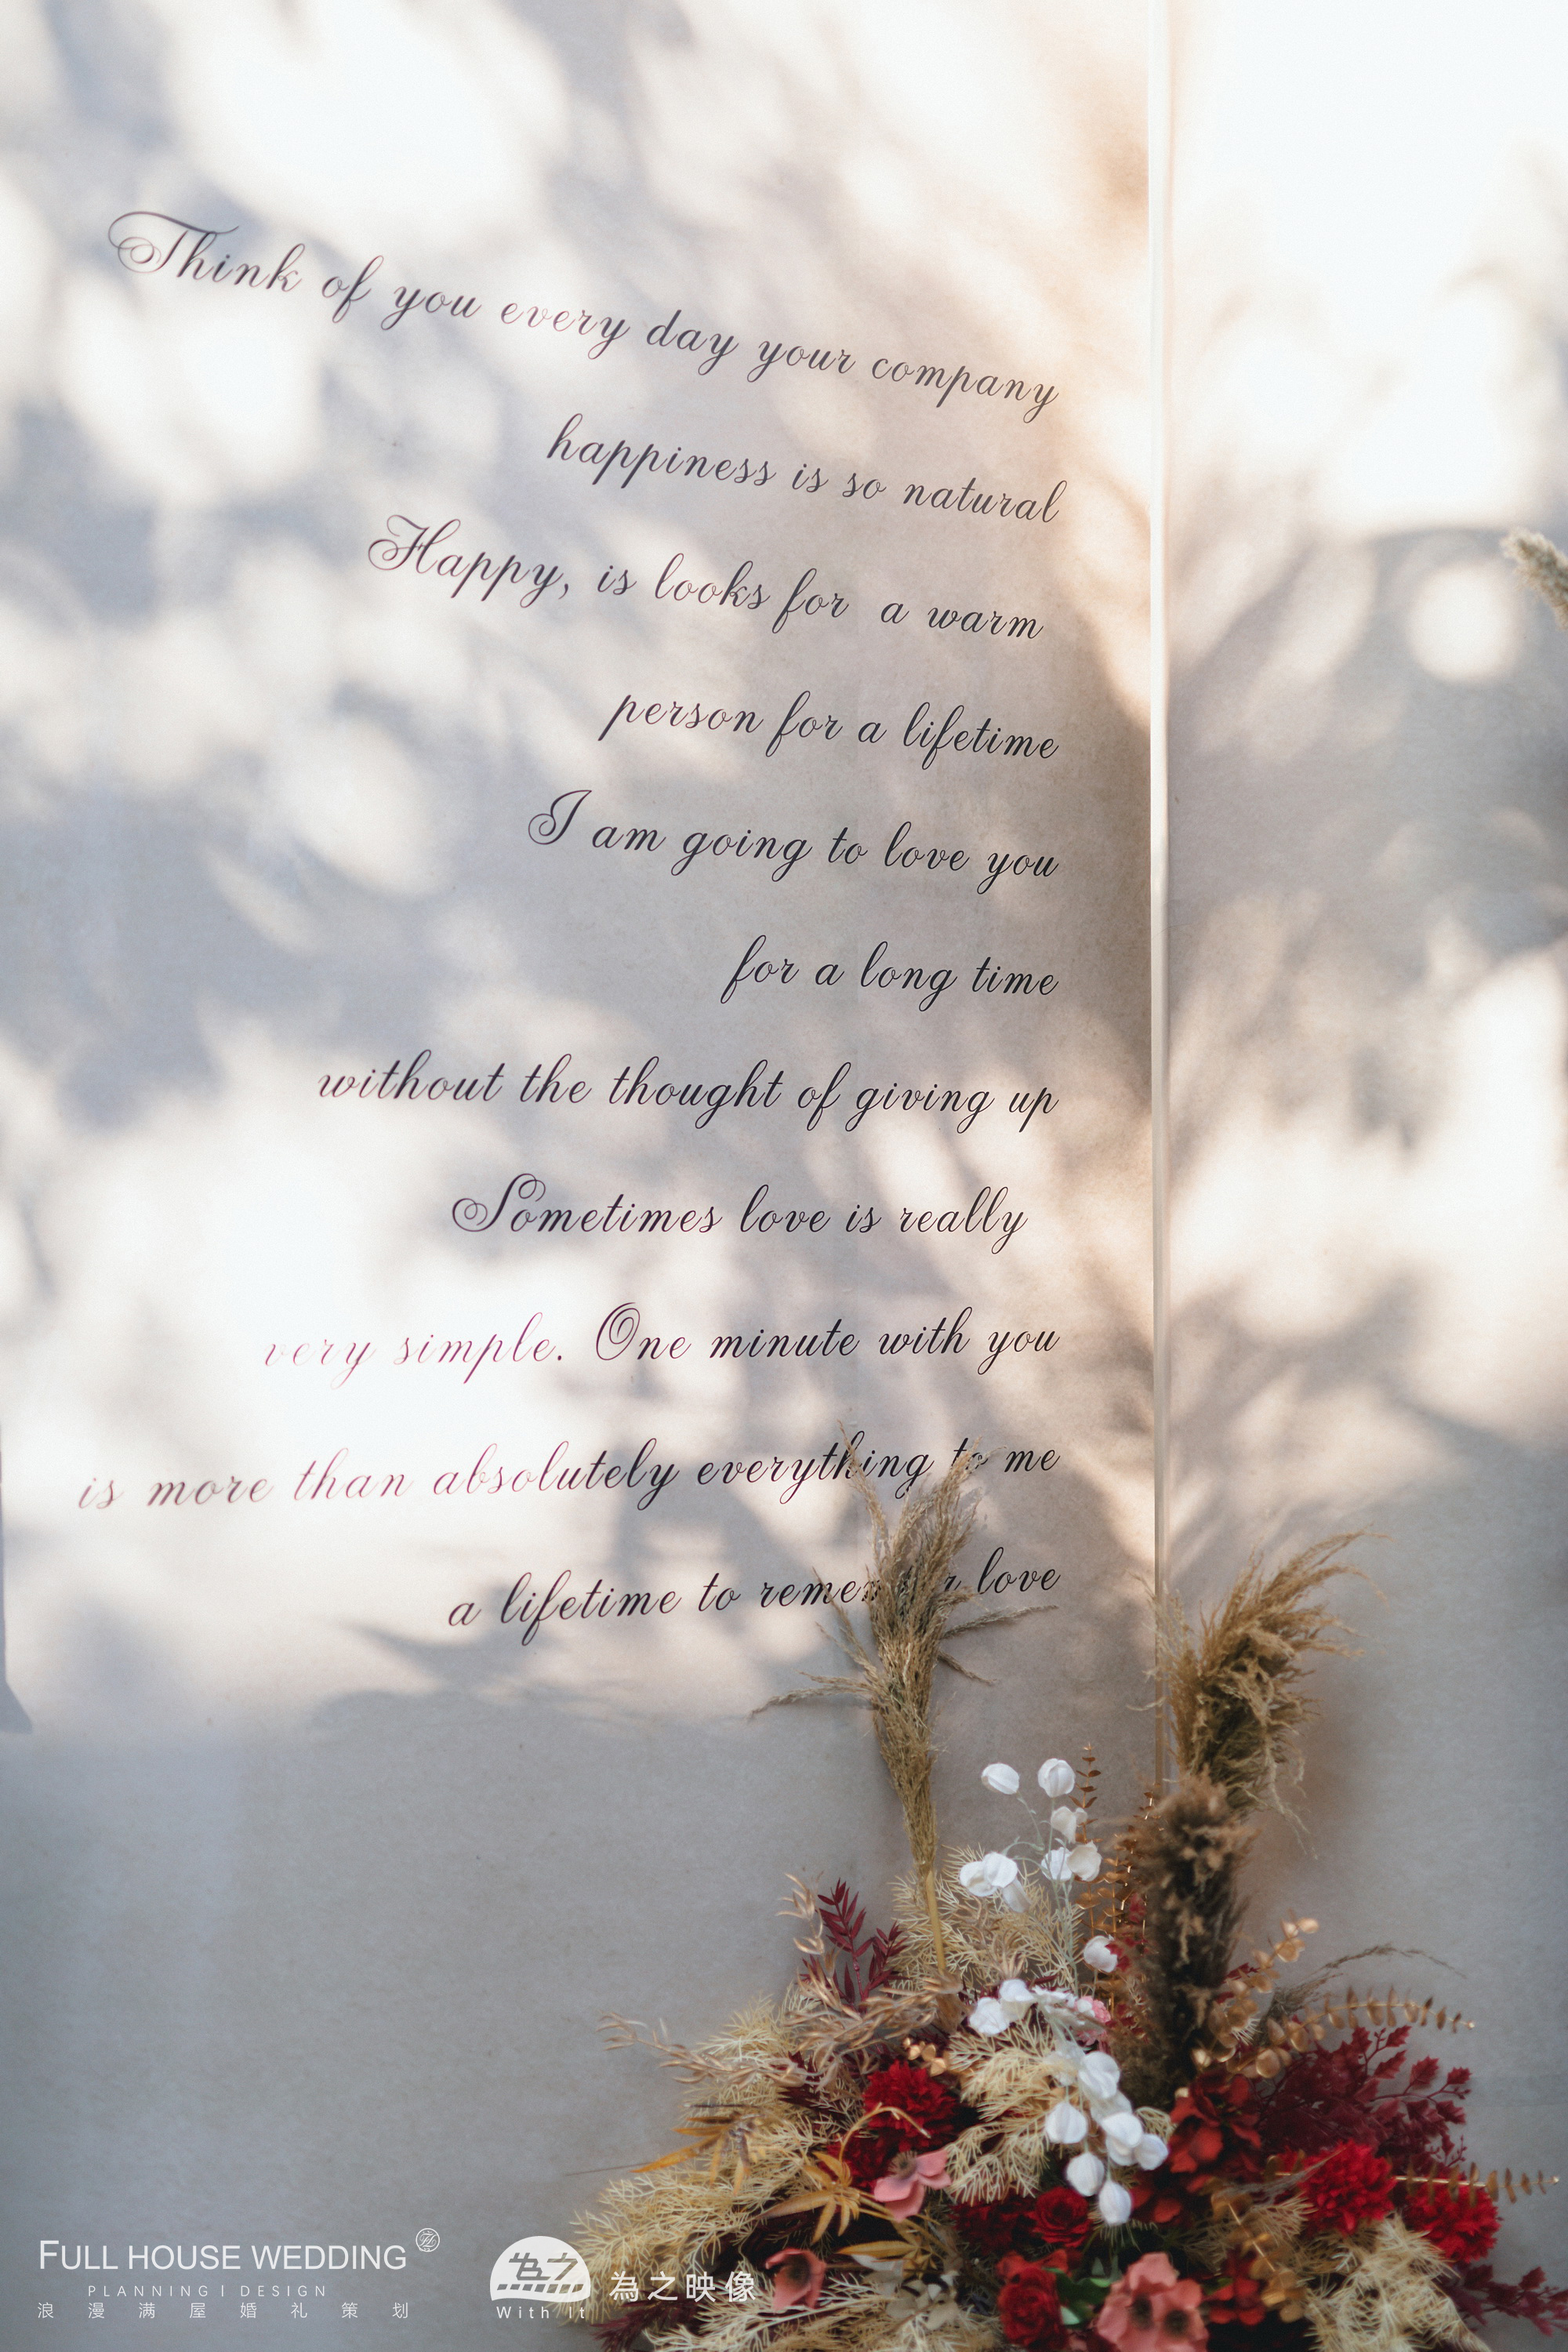 Think of you every day your company
happiness is so natural
Happy, is looks for a warm
person for a lifetime
I am going to love you
for a long time
without the thought of giving up
Sometimes love is really
very simple. One minute with you
is more than absolutely everything to me
a lifetime to remember love
FULL HOUSE WEDDING
PLANNING | DESIGN
浪漫满屋婚礼策划
為之
With It
為之映像